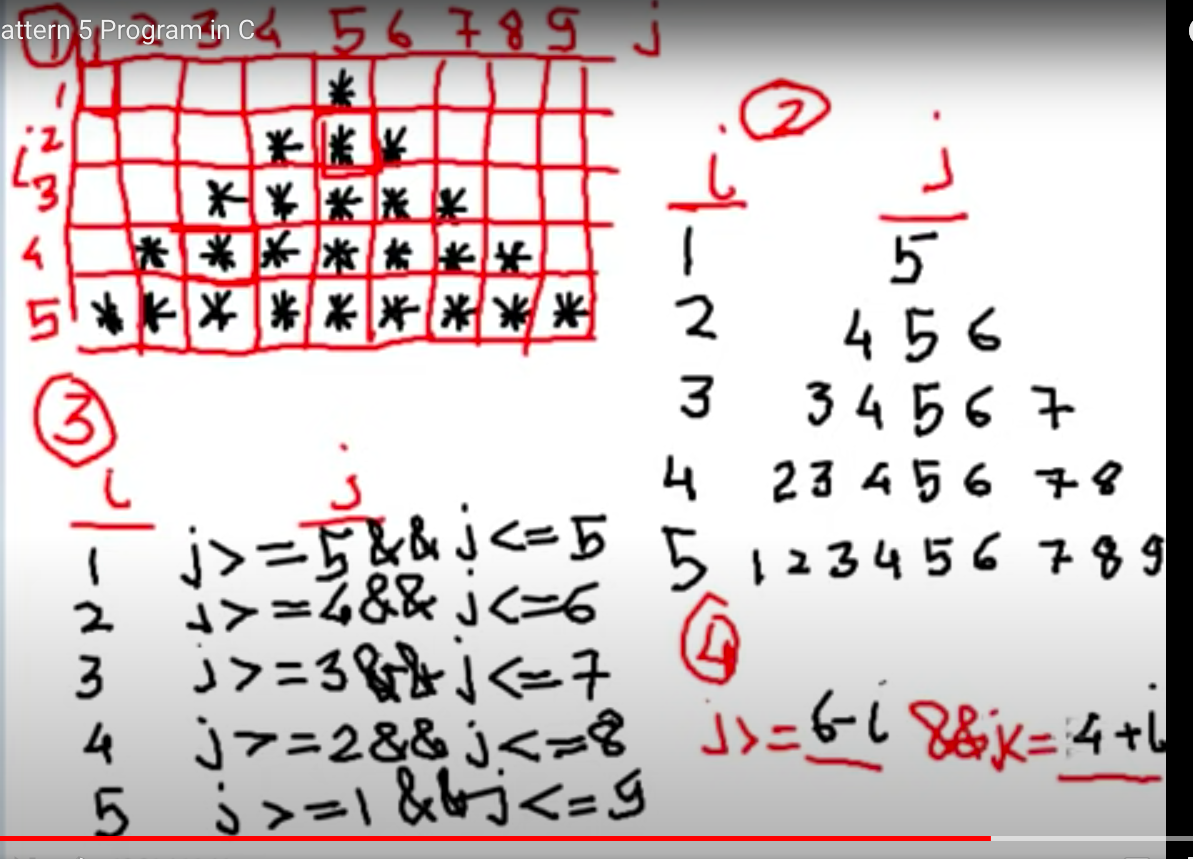 attern 5 Program in C
① 1 2 3 4 5 6 7 8 9 j
1 *
i 2 * * *
3 * * * * *
4 * * * * * * *
5 * * * * * * * * *
②
i j
1 5
2 4 5 6
3 3 4 5 6 7
4 2 3 4 5 6 7 8
5 1 2 3 4 5 6 7 8 9
③
i j
1 j>=5 && j<=5
2 j>=4 && j<=6
3 j>=3 && j<=7
4 j>=2 && j<=8
5 j>=1 && j<=9
④
j>=6-i && j<=4+i